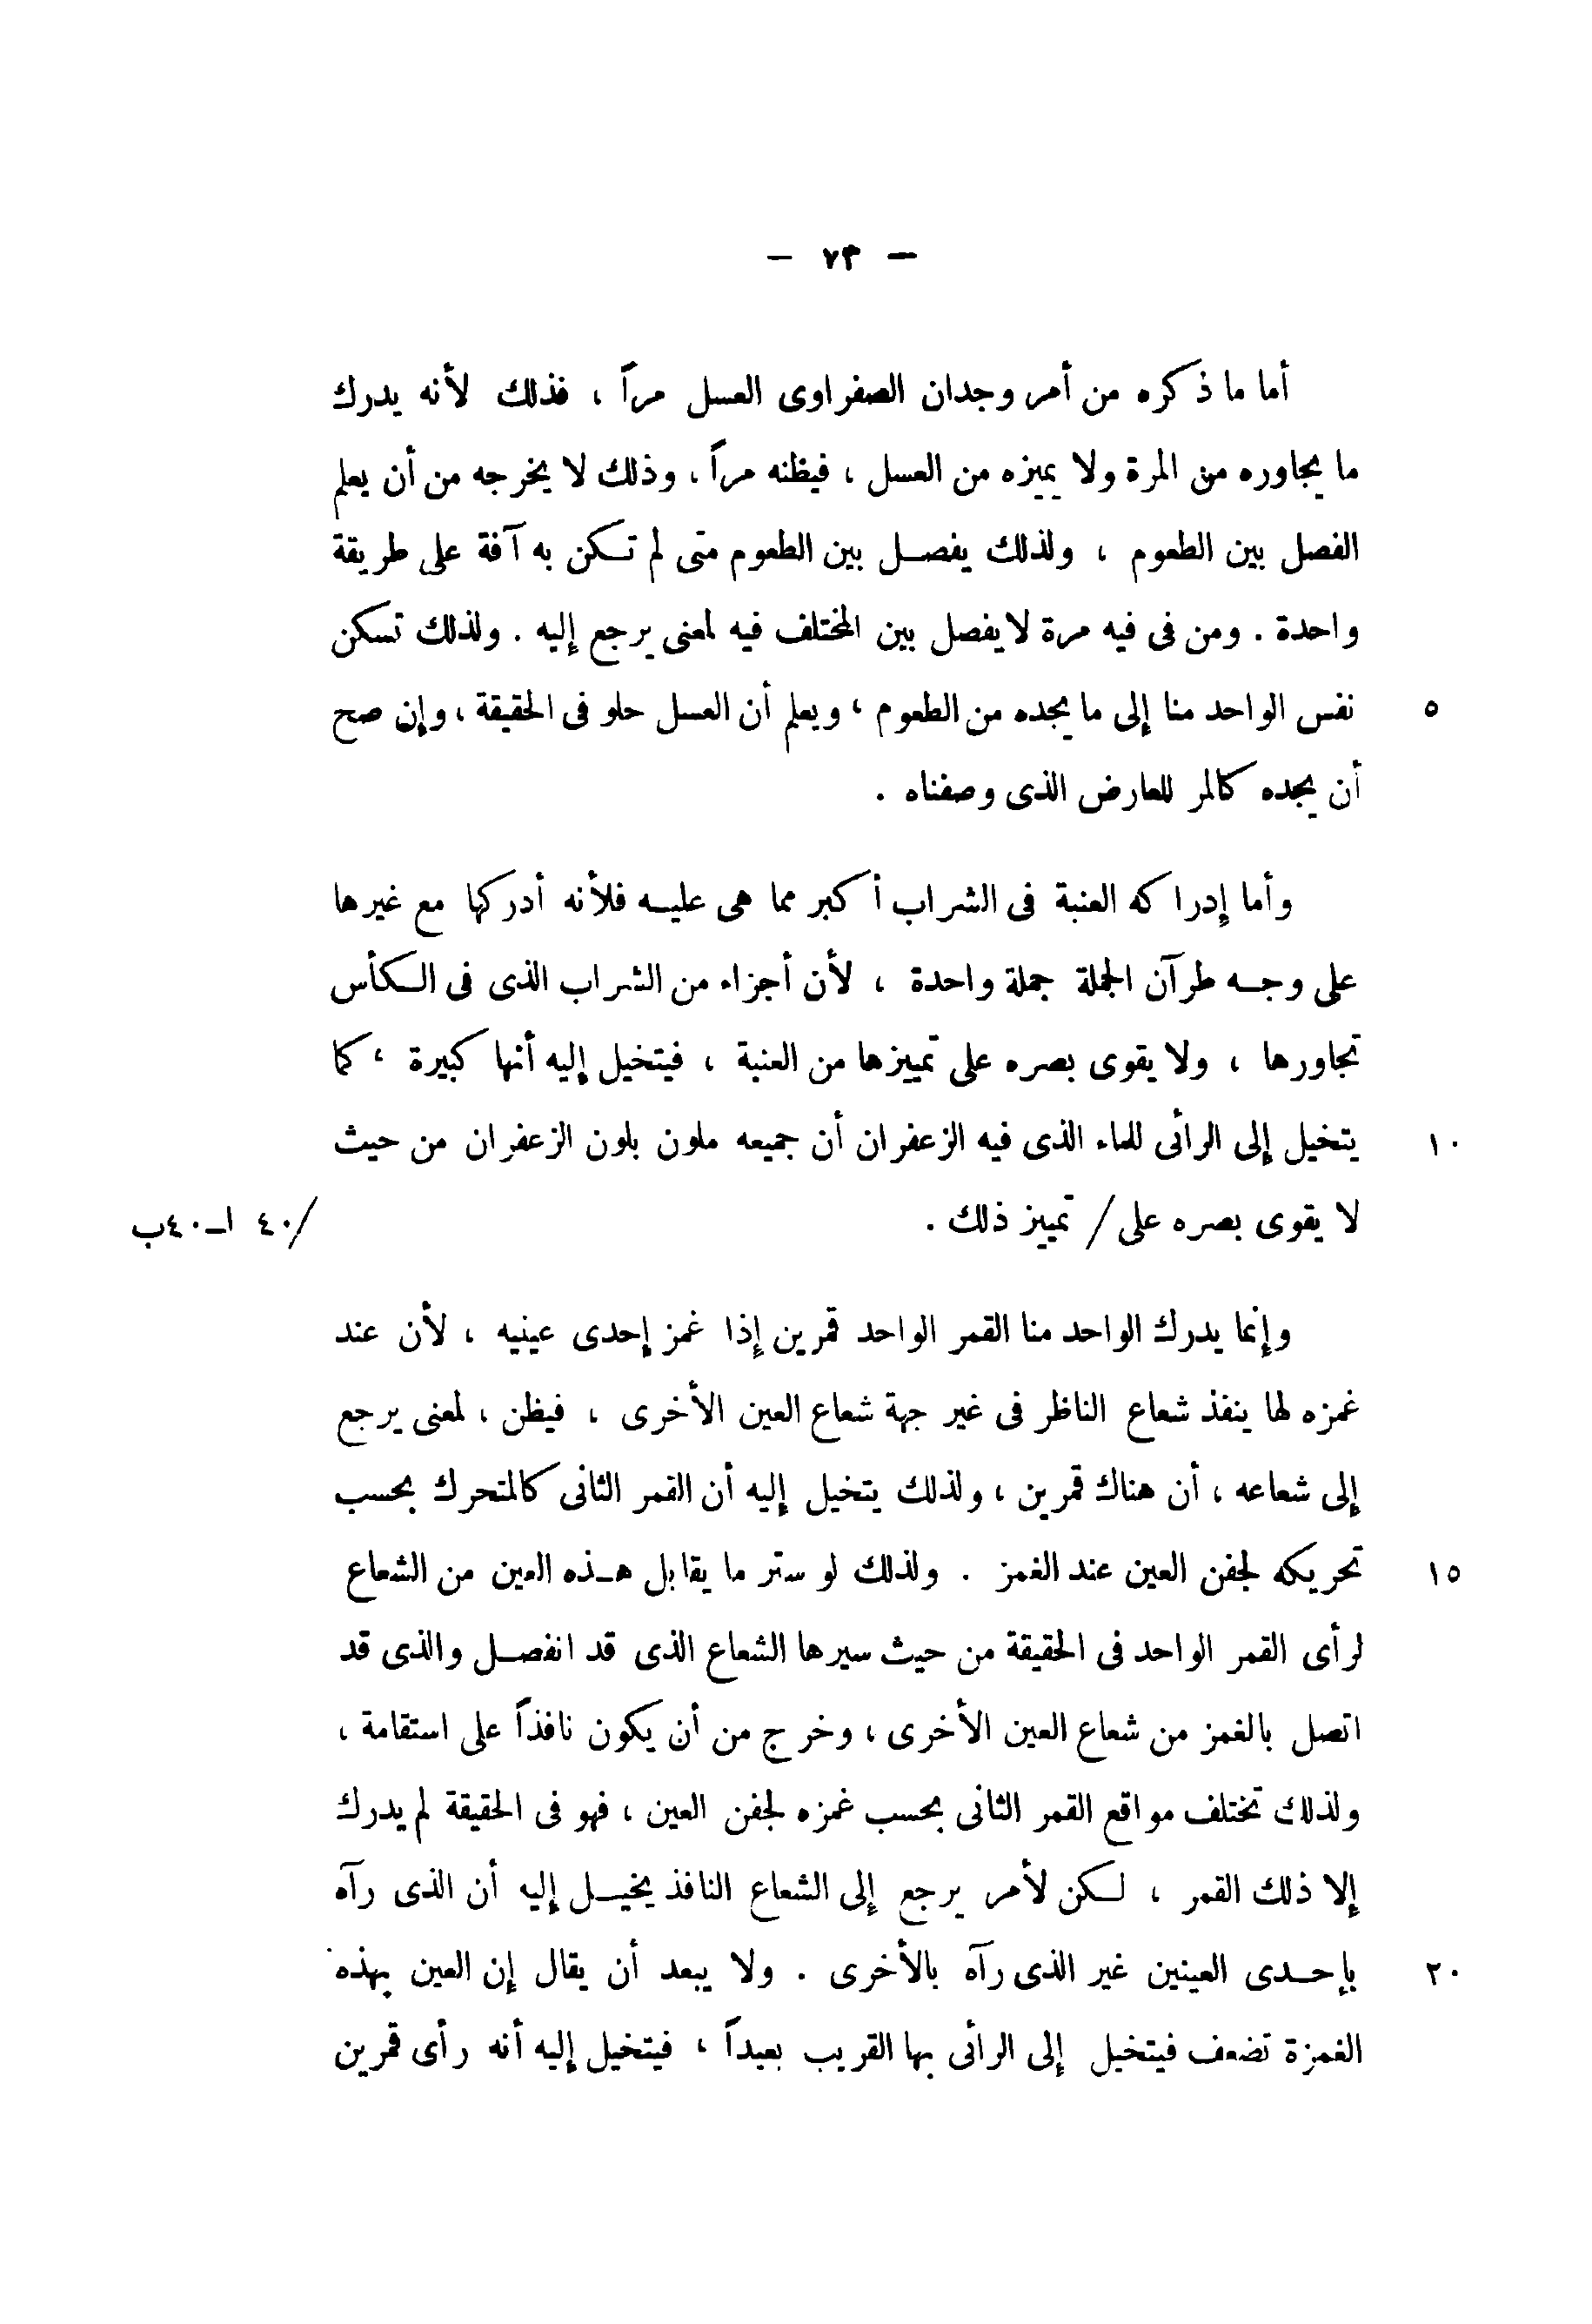 — ٧٣ —
أما ما ذكره من أمر وجدان الصفراوى العسل مراً ، فذلك لأنه يدرك
ما يجاوره من المرة ولا يميزه من العسل ، فيظنه مراً ، وذلك لا يخرجه من أن يعلم
الفصل بين الطعوم ، ولذلك يفصل بين الطعوم متى لم تكن به آفة على طريقة
واحدة . ومن فى فيه مرة لا يفصل بين المختلف فيه لمعنى يرجع إليه . ولذلك تسكن
٥ نفس الواحد منا إلى ما يجده من الطعوم ، ويعلم أن العسل حلو فى الحقيقة ، وإن صح
أن يجده كالمر للعارض الذى وصفناه .
وأما إدراكه العنبة فى الشراب أكبر مما هى عليه فلأنه أدركها مع غيرها
على وجه طرآن الجملة جملة واحدة ، لأن أجزاء من الشراب الذى فى الكأس
تجاورها ، ولا يقوى بصره على تمييزها من العنبة ، فيتخيل إليه أنها كبيرة ، كما
١٠ يتخيل إلى الرائى للماء الذى فيه الزعفران أن جميعه ملون بلون الزعفران من حيث
لا يقوى بصره على / تمييز ذلك . /٤٠ ا-٤٠ب
وإنما يدرك الواحد منا القمر الواحد قمرين إذا غمز إحدى عينيه ، لأن عند
غمزه لها ينفذ شعاع الناظر فى غير جهة شعاع العين الأخرى ، فيظن ، لمعنى يرجع
إلى شعاعه ، أن هناك قمرين ، ولذلك يتخيل إليه أن القمر الثانى كالمتحرك بحسب
١٥ تحريكه لجفن العين عند الغمز . ولذلك لو ستر ما يقابل هذه العين من الشعاع
لرأى القمر الواحد فى الحقيقة من حيث سيرها الشعاع الذى قد انفصل والذى قد
اتصل بالغمز من شعاع العين الأخرى ، وخرج من أن يكون نافذاً على استقامة ،
ولذلك تختلف مواقع القمر الثانى بحسب غمزه لجفن العين ، فهو فى الحقيقة لم يدرك
إلا ذلك القمر ، لكن لأمر يرجع إلى الشعاع النافذ يخيل إليه أن الذى رآه
٢٠ بإحدى العينين غير الذى رآه بالأخرى . ولا يبعد أن يقال إن العين بهذه
الغمزة تضعف فيتخيل إلى الرائى بها القريب بعيداً ، فيتخيل إليه أنه رأى قمرين